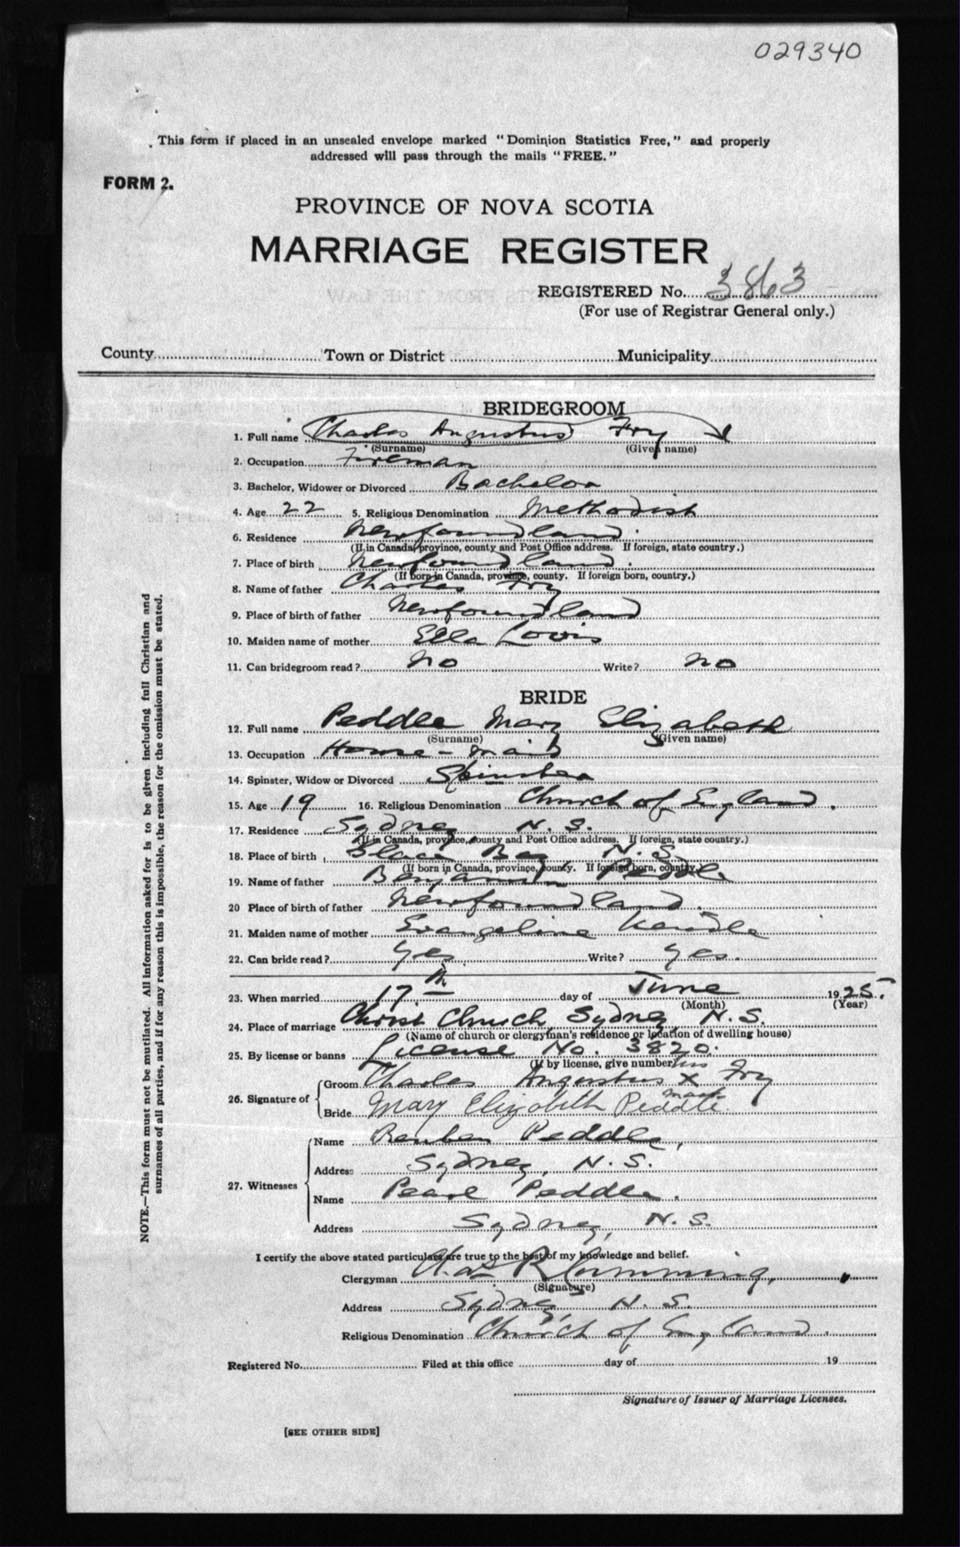 029340
This form if placed in an unsealed envelope marked "Dominion Statistics Free," and properly
addressed will pass through the mails "FREE."
FORM 2.
PROVINCE OF NOVA SCOTIA
MARRIAGE REGISTER
REGISTERED No. 3863
(For use of Registrar General only.)
County Town or District Municipality
BRIDEGROOM
1. Full name Charles Angustus Fry
(Surname) (Given name)
2. Occupation Fireman
3. Bachelor, Widower or Divorced Bachelor
4. Age 22 5. Religious Denomination Methodist
6. Residence Newfoundland
(If in Canada, province, county and Post Office address. If foreign, state country.)
7. Place of birth Newfoundland.
(If born in Canada, province, county. If foreign born, country.)
8. Name of father Charles Fry
9. Place of birth of father Newfoundland
10. Maiden name of mother Ella
11. Can bridegroom read? no Write? no
BRIDE
12. Full name Peddle Mary Elizabeth
(Surname) (Given name)
13. Occupation House-maid
14. Spinster, Widow or Divorced Spinster
15. Age 19 16. Religious Denomination Church of England.
17. Residence Sydney N.S.
(If in Canada, province, county and Post Office address. If foreign, state country.)
18. Place of birth Bay N.S.
(If born in Canada, province, county. If foreign born, country.)
19. Name of father Benjamin Peddle
20 Place of birth of father Newfoundland.
21. Maiden name of mother Evangeline
22. Can bride read? Yes. Write? Yes.
23. When married 17th day of June 1925.
(Month) (Year)
24. Place of marriage Christ Church, Sydney N.S.
(Name of church or clergyman's residence or location of dwelling house)
25. By license or banns License No. 3820.
(If by license, give number)
his
26. Signature of Groom Charles Angustus X Fry
mark
Bride Mary Elizabeth Peddle
27. Witnesses Name Reuben Peddle,
Address Sydney, N.S.
Name Pearl Peddle.
Address Sydney, N.S.
I certify the above stated particulars are true to the best of my knowledge and belief.
Clergyman Chas R Cumming,
(Signature)
Address Sydney, N.S.
Religious Denomination Church of England.
Registered No. Filed at this office day of 19
Signature of Issuer of Marriage Licenses.
[SEE OTHER SIDE]
NOTE.—This form must not be mutilated. All information asked for is to be given including full Christian and
surnames of all parties, and if for any reason this is impossible, the reason for the omission must be stated.